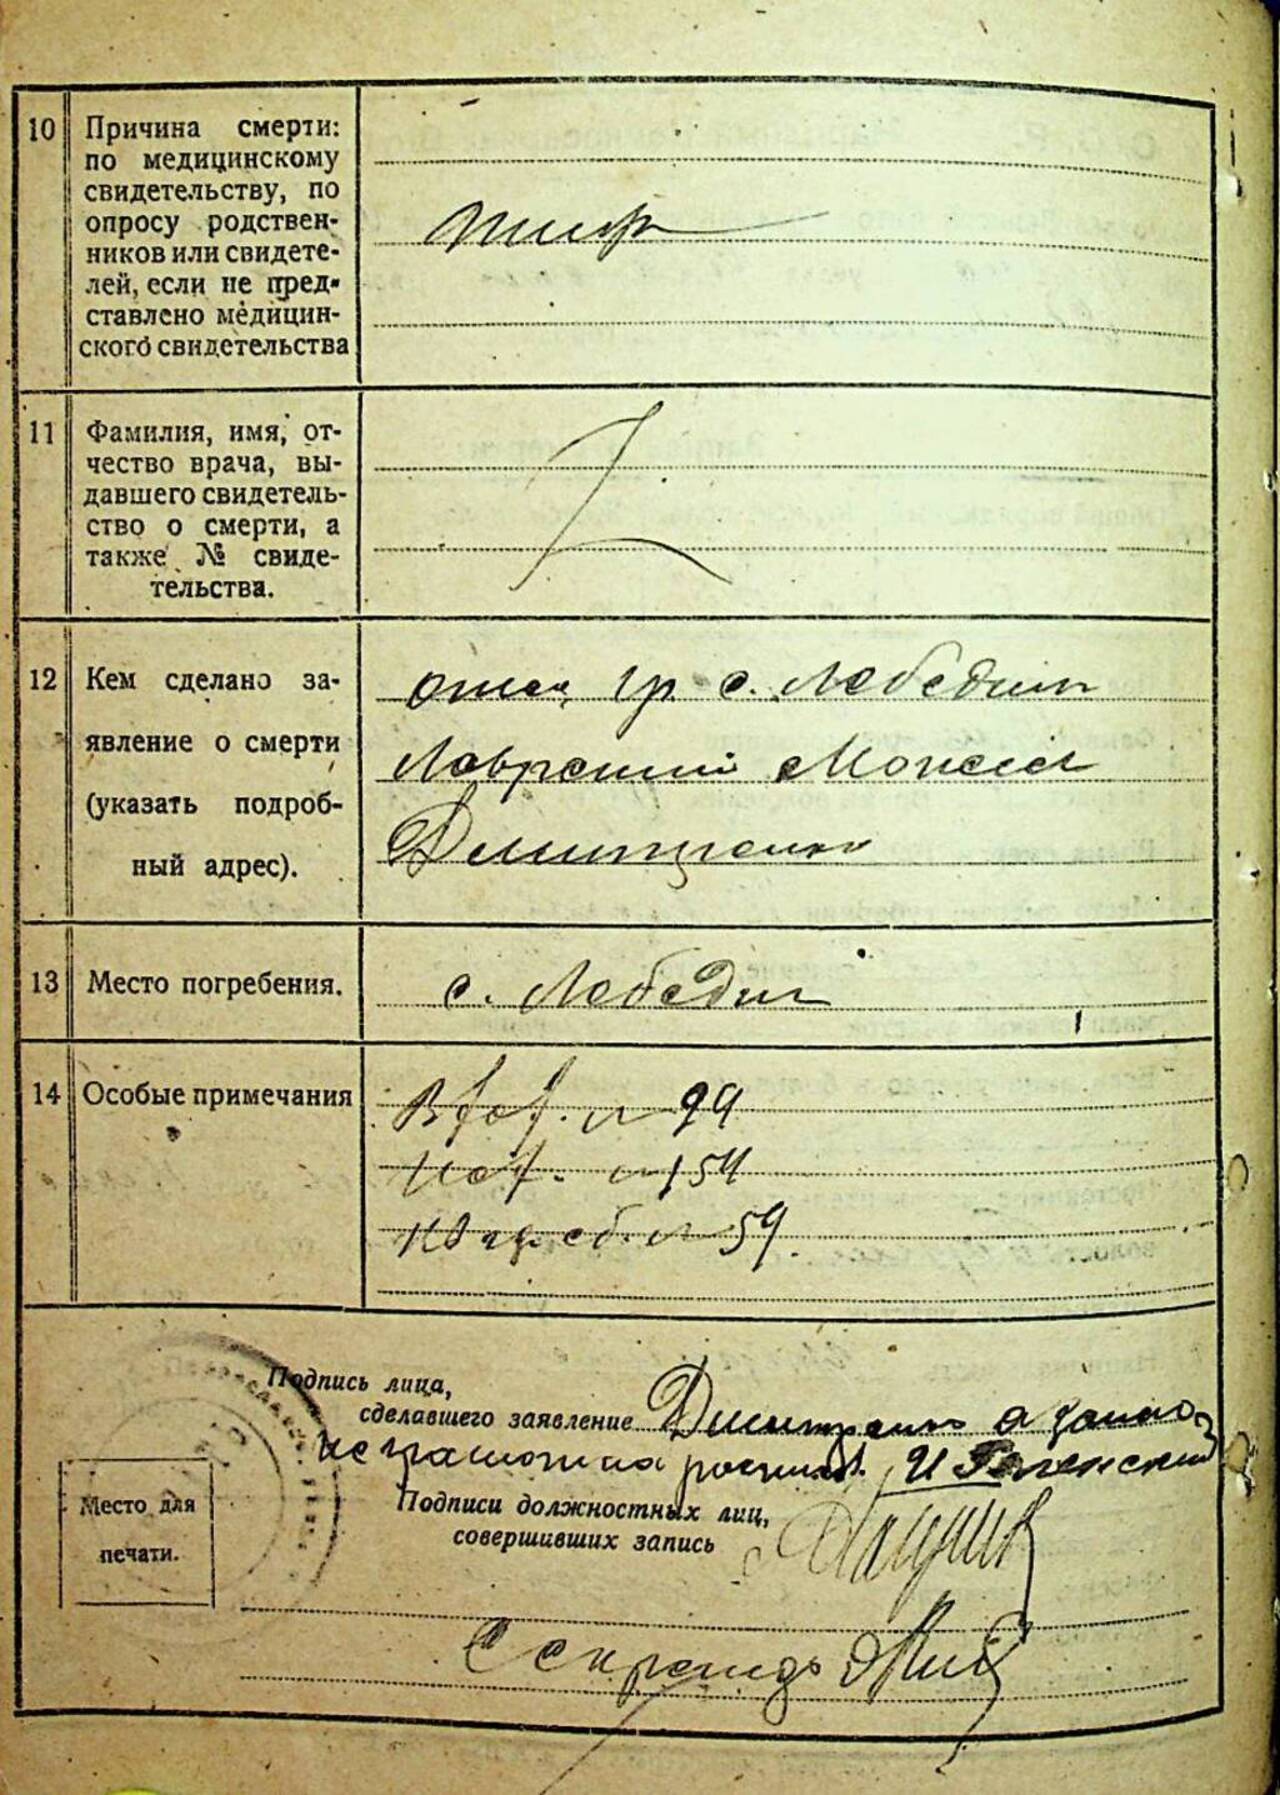 10
Причина смерти:
по медицинскому
свидетельству, по
опросу родствен-
ников или свидете-
лей, если не пред-
ставлено медицин-
ского свидетельства
тиф
11
Фамилия, имя, от-
чество врача, вы-
давшего свидетель-
ство о смерти, а
также № свиде-
тельства.
12
Кем сделано за-
явление о смерти
(указать подроб-
ный адрес).
отец гр. с. Лебедин
Лаврентий Моисее
Дмитренко
13
Место погребения.
с. Лебедин
14
Особые примечания
99
154
59.
Подпись лица,
сделавшего заявление Дмитренко а за
неграмотна И
Место для
печати.
Подписи должностных лиц,
совершивших запись
Секретарь